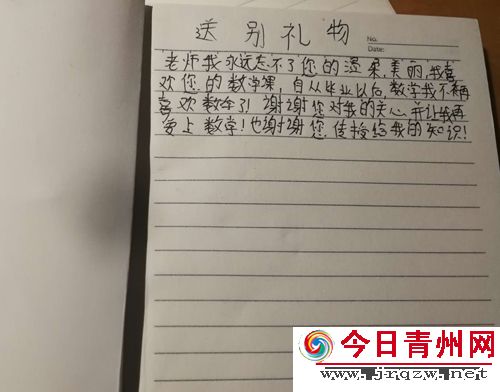 送别礼物
No.
Date:
老师我永远忘不了您的温柔,美丽,我喜
欢您的数学课,自从毕业以后,数学我不再
喜欢数学了!谢谢您对我的关心,并让我再
爱上数学!也谢谢您,传授给我的知识!
今日青州网
www.jrqzw.net